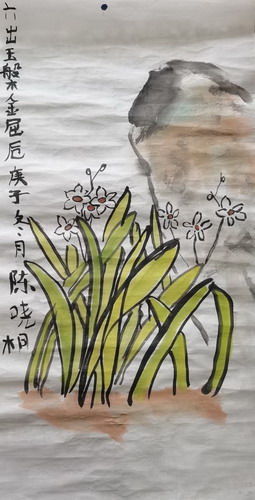 六出玉盤金屈卮庚子冬月陈晓相